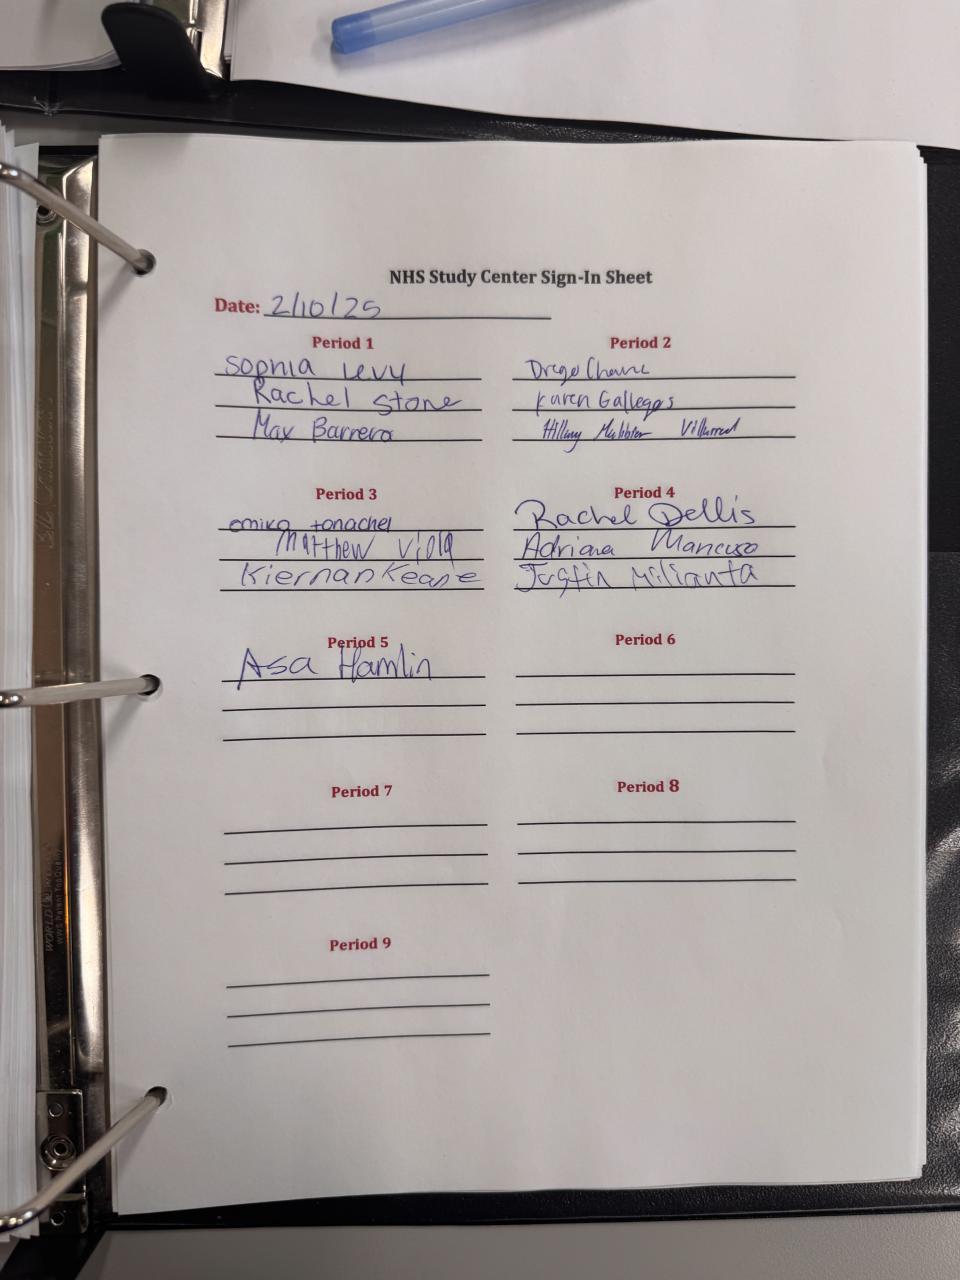 NHS Study Center Sign-In Sheet
Date: 2/10/25
Period 1
Sophia Levy
Rachel Stone
Max Barrera
Period 2
Karen Gallegos
Hillary
Period 3
emiko tonachel
Matthew Viola
Kiernan Keane
Period 4
Rachel Dellis
Adriana Mancuso
Justin Milianta
Period 5
Asa Hamlin
Period 6
Period 7
Period 8
Period 9